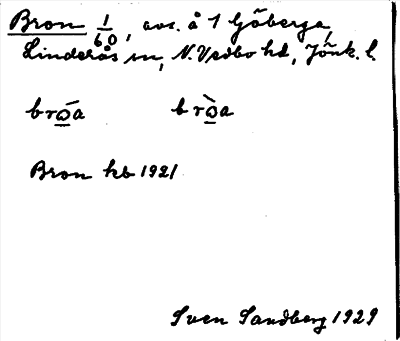 Bron 1/60, avs. å 1 Göberga,
Linderås sn, N. Vedbo hd, Jönk. l.
bróa bròa
Bron kb 1921
Sven Sandberg 1929